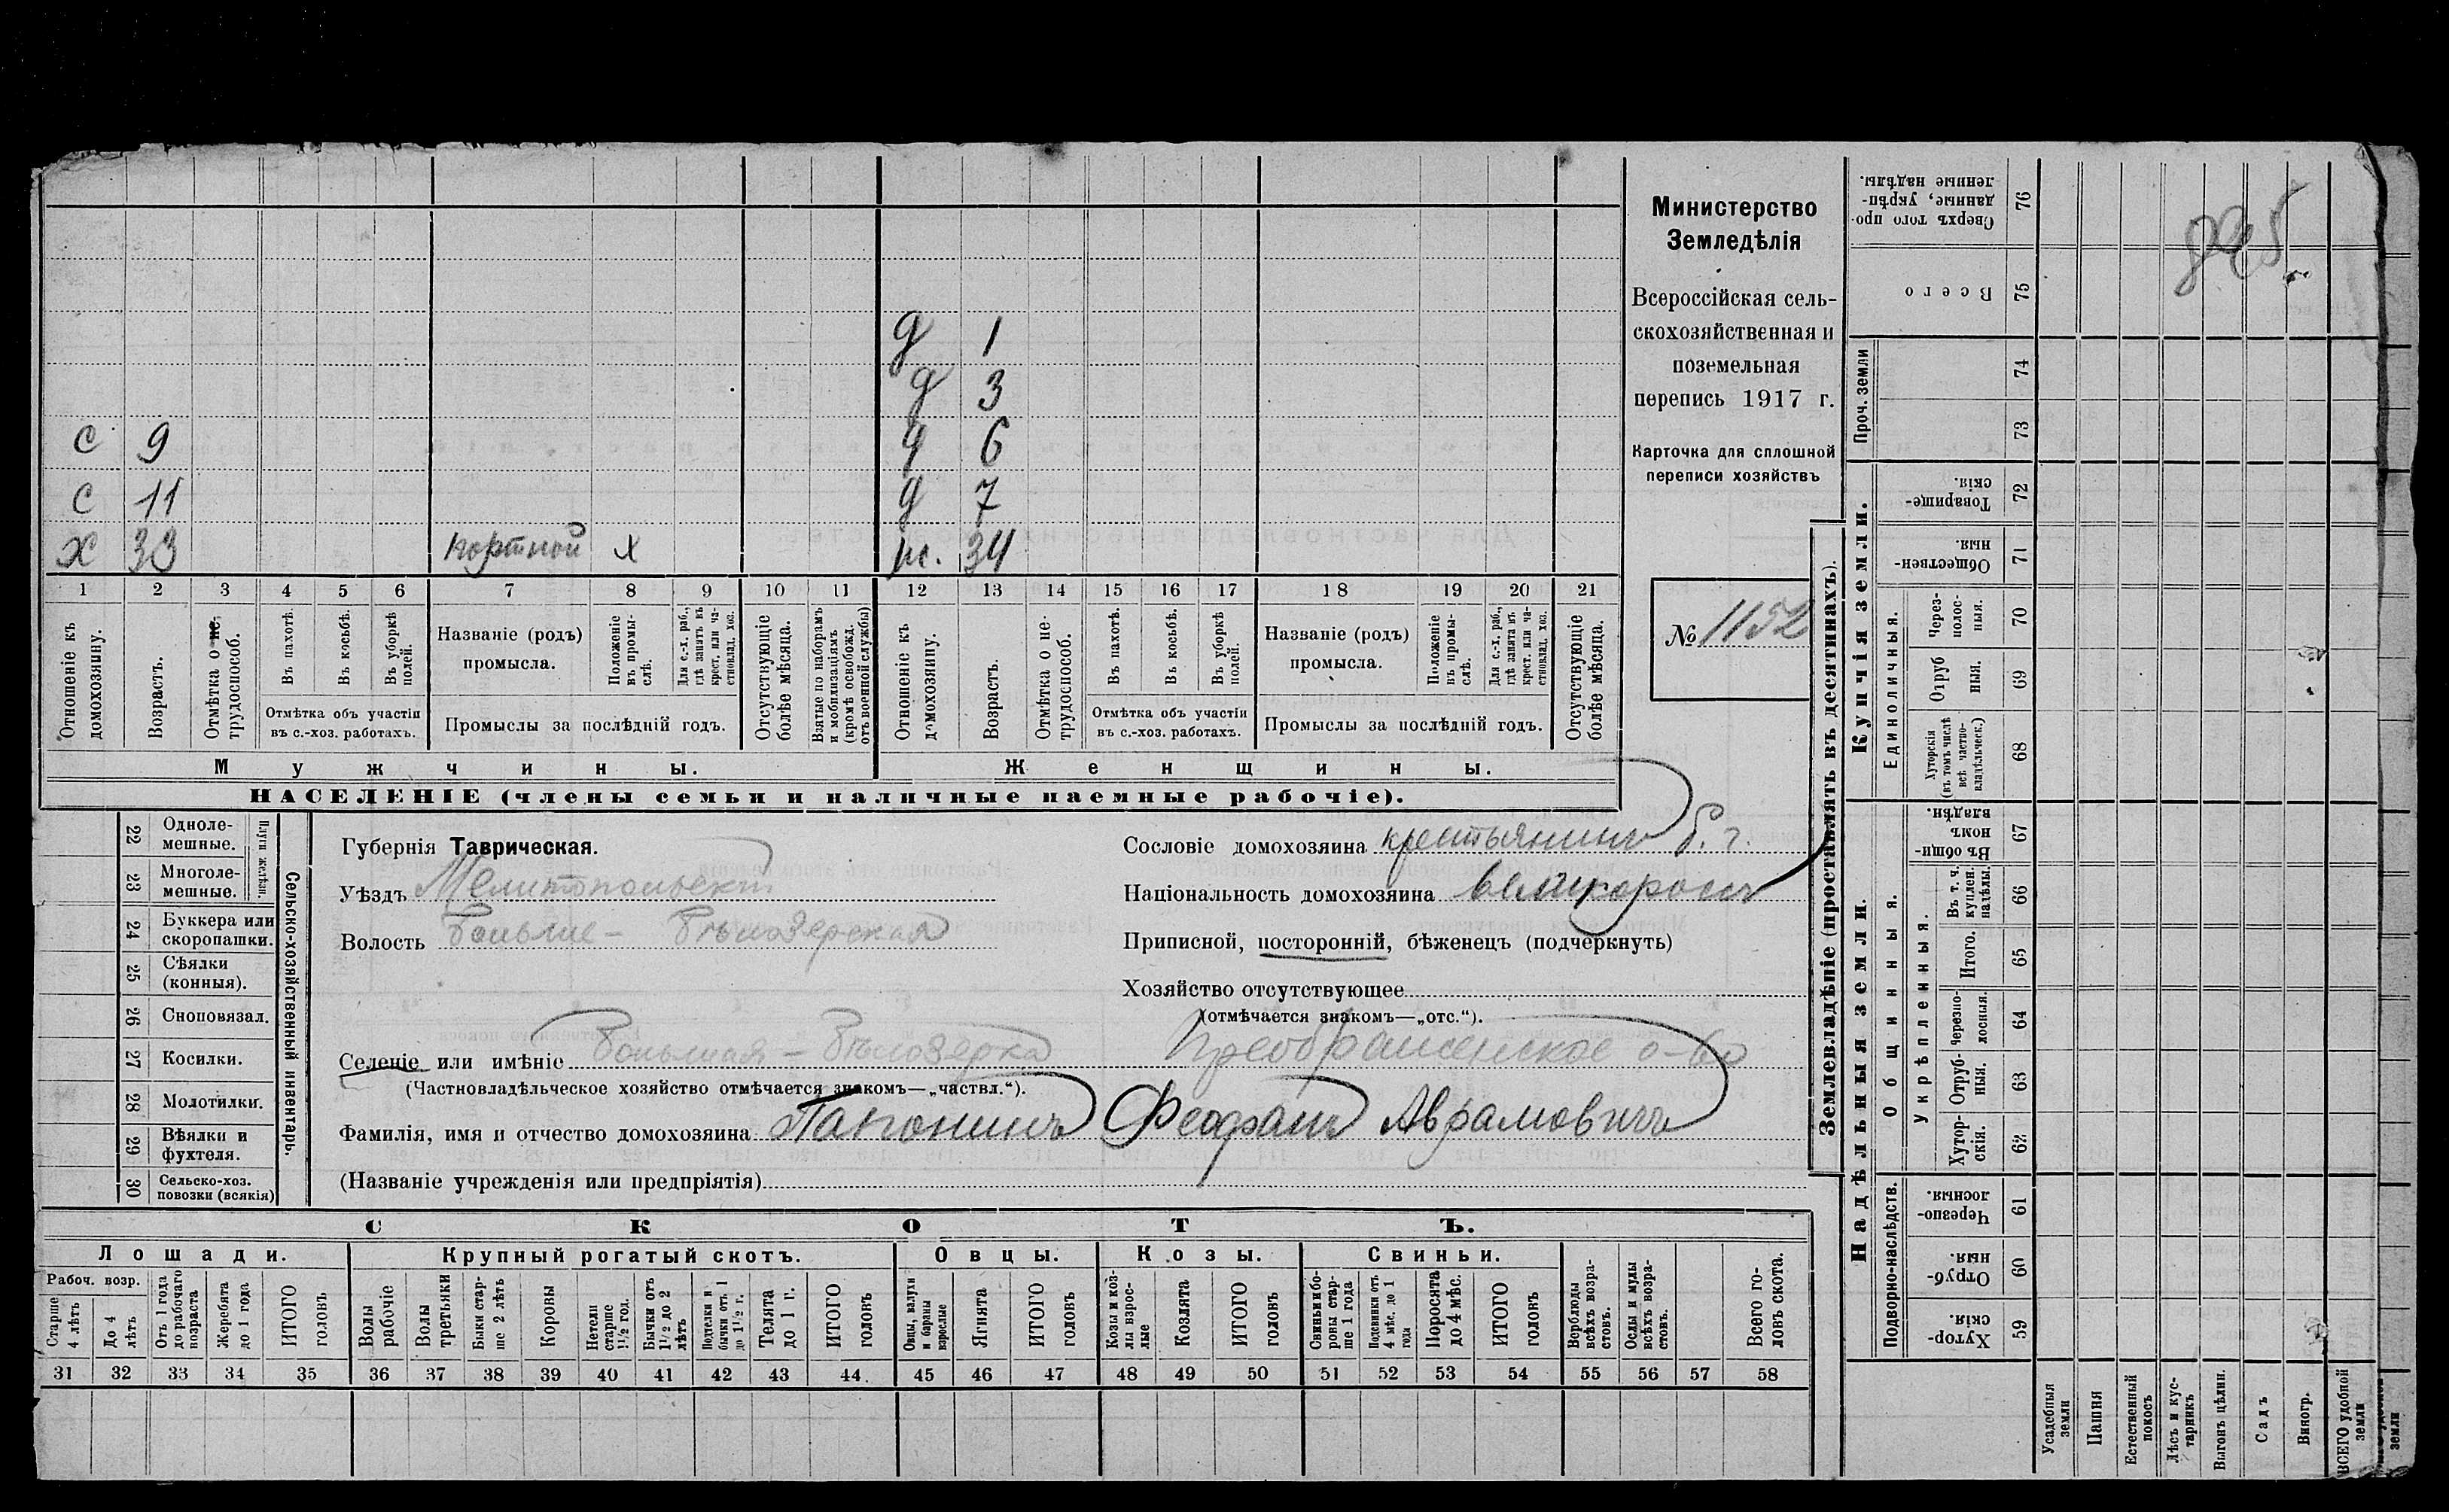 д 1
д 3
с 9 д 6
с 11 д 7
х 33 портной х ж. 34
1 2 3 4 5 6 7 8 9 10 11 12 13 14 15 16 17 18 19 20 21
Отношеніе къ домохозяину.
Возрастъ.
Отмѣтка о не-трудоспособ.
Въ пахотѣ.
Въ косьбѣ.
Въ уборкѣ полей.
Отмѣтка объ участіи
въ с.-хоз. работахъ.
Названіе (родъ)
промысла.
Положеніе въ промы-слѣ.
Для с.-х. раб., гдѣ занятъ въ крест. или ча-стновлад. хоз.
Промыслы за послѣдній годъ.
Отсутствующіе болѣе мѣсяца.
Взятые по наборамъ и мобилизаціямъ (кромѣ освобожд. отъ военной службы)
Отношеніе къ домохозяину.
Возрастъ.
Отмѣтка о не-трудоспособ.
Въ пахотѣ.
Въ косьбѣ.
Въ уборкѣ полей.
Отмѣтка объ участіи
въ с.-хоз. работахъ.
Названіе (родъ)
промысла.
Положеніе въ промы-слѣ.
Для с.-х. раб., гдѣ занята въ крест. или ча-стновлад. хоз.
Промыслы за послѣдній годъ.
Отсутствующіе болѣе мѣсяца.
Мужчины. Женщины.
НАСЕЛЕНІЕ (члены семьи и наличные наемные рабочіе).
Министерство
Земледѣлія
Всероссійская сель-
скохозяйственная и
поземельная
перепись 1917 г.
Карточка для сплошной
переписи хозяйствъ
№ 1152
Сельско-хозяйственный инвентарь.
Плуги желѣзн.
22 Одноле-мешные.
23 Многоле-мешные.
24 Буккера или скоропашки.
25 Сѣялки (конныя).
26 Сноповязал.
27 Косилки.
28 Молотилки.
29 Вѣялки и фухтеля.
30 Сельско-хоз. повозки (всякія)
Губернія Таврическая.
Уѣздъ Мелитопольскій
Волость Больше-Бѣлозерская
Сословіе домохозяина крестьянинъ
Національность домохозяина великороссъ
Приписной, посторонній, бѣженецъ (подчеркнуть)
Хозяйство отсутствующее
(отмѣчается знакомъ—„отс.“).
Селеніе или имѣніе Большая-Бѣлозерка Преображенское о-во
(Частновладѣльческое хозяйство отмѣчается знакомъ—„частвл.“).
Фамилія, имя и отчество домохозяина Папонинъ Феофанъ Аврамовичъ
(Названіе учрежденія или предпріятія)
СКОТЪ.
Лошади. Крупный рогатый скотъ. Овцы. Козы. Свиньи.
Рабоч. возр.
Старше 4 лѣтъ
До 4 лѣтъ
Отъ 1 года до рабочаго возраста
Жеребята до 1 года
ИТОГО головъ
Волы рабочіе
Волы третьяки
Быки стар-ше 2 лѣтъ
Коровы
Нетели старше 1½ год.
Бычки отъ 1½ до 2 лѣтъ
Подтелки и бычки отъ 1 до 1½ г.
Телята до 1 г.
ИТОГО головъ
Овцы, валухи и бараны взрослые
Ягнята
ИТОГО головъ
Козы и коз-лы взрос-лые
Козлята
ИТОГО головъ
Свиньи и бо-ровы стар-ше 1 года
Подсвинки отъ 4 мѣс. до 1 года
Поросята до 4 мѣс.
ИТОГО головъ
Верблюды всѣхъ возра-стовъ.
Ослы и мулы всѣхъ возра-стовъ.
Всего го-ловъ скота.
31 32 33 34 35 36 37 38 39 40 41 42 43 44 45 46 47 48 49 50 51 52 53 54 55 56 57 58
Землевладѣніе (проставлять въ десятинахъ).
Купчія земли.
Надѣльныя земли.
Проч. земли
Единоличныя.
Общинныя.
Укрѣпленныя.
Подворно-наслѣдств.
Сверхъ того про-данные, укрѣп-ленные надѣлы. 76
Всего 75
74
73
Товарище-скія. 72
Обществен-ныя. 71
Через-полос-ныя. 70
Отруб-ныя. 69
Хуторскія (въ томъ числѣ всѣ частно-владѣльческ.) 68
Въ общин-номъ владѣн. 67
Въ т. ч. куплен. надѣлы. 66
Итого. 65
Черезпо-лосныя. 64
Отруб-ныя. 63
Хутор-скія. 62
Черезпо-лосныя. 61
Отруб-ныя. 60
Хутор-скія. 59
Усадебныя земли
Пашня
Естественный покосъ
Лѣсъ и кус-тарникъ
Выгонъ цѣлин.
Садъ
Виногр.
ВСЕГО удобной земли
земли